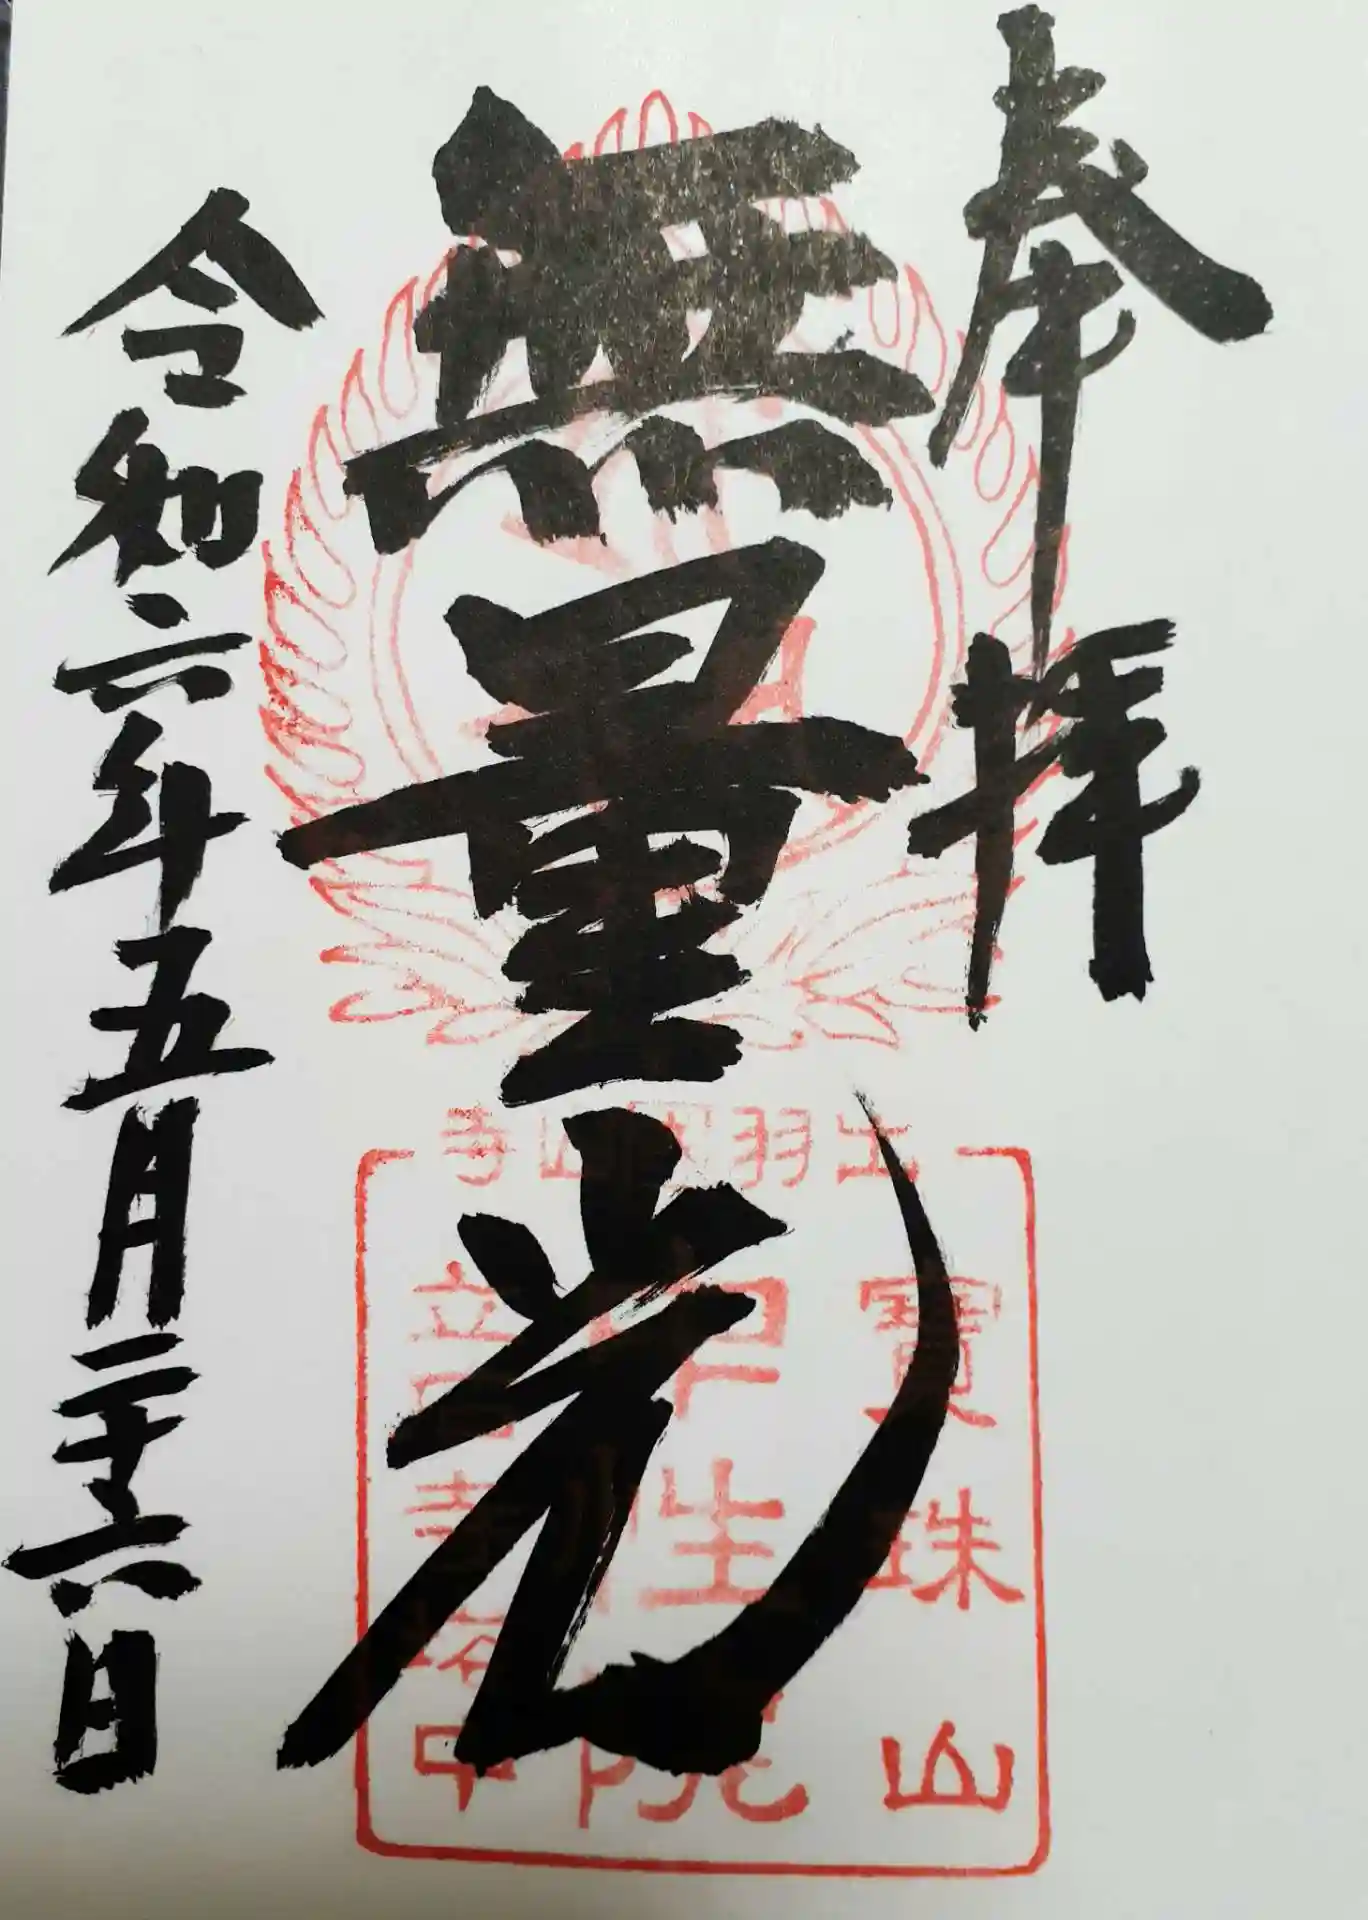 奉拝
無量光
令和六年五月二十六日
出羽國山寺
寶珠山
中性院
立石寺塔中